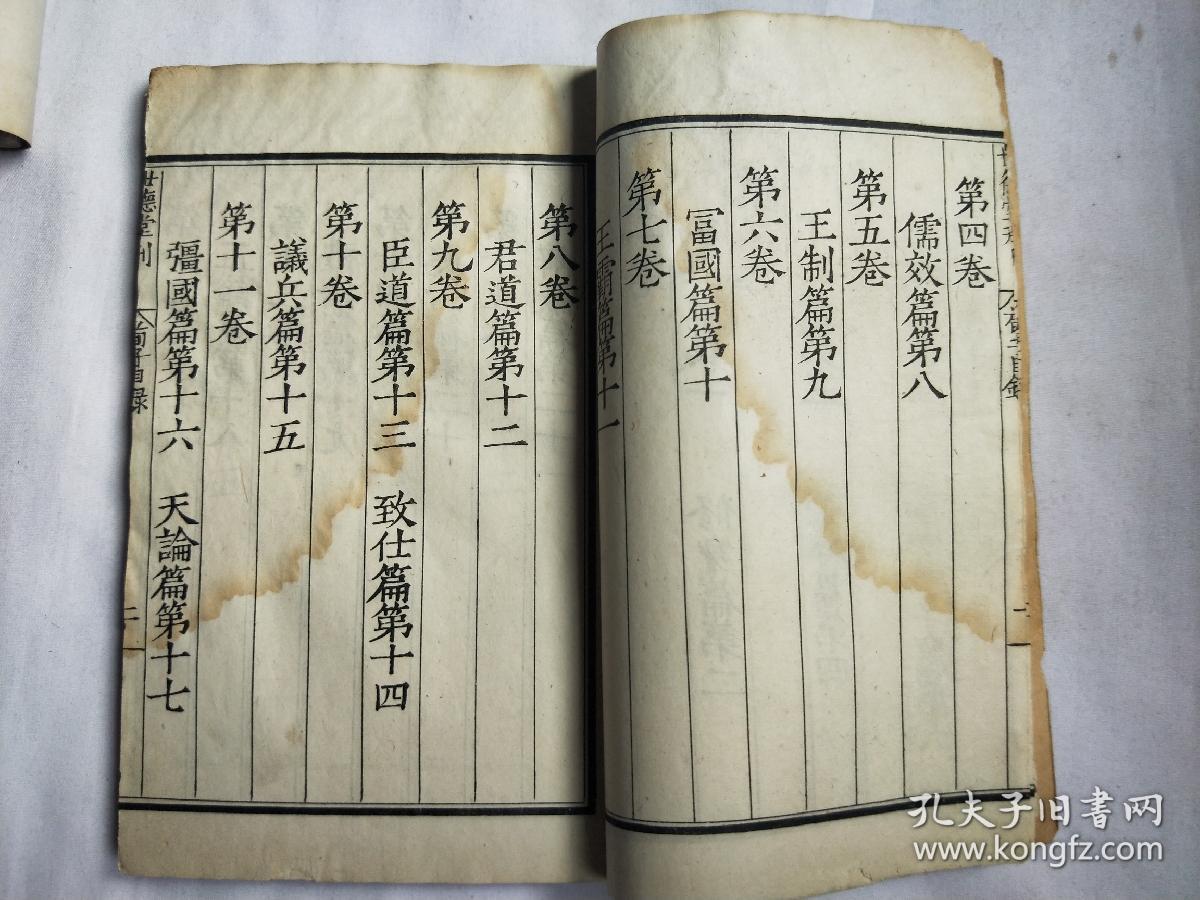 第四卷
儒效篇第八
第五卷
王制篇第九
第六卷
冨國篇第十
第七卷
王霸篇第十一
第八卷
君道篇第十二
第九卷
臣道篇第十三 致仕篇第十四
第十卷
議兵篇第十五
第十一卷
彊國篇第十六 天論篇第十七
世德堂刊
荀子目録
二
孔夫子旧书网
www.kongfz.com